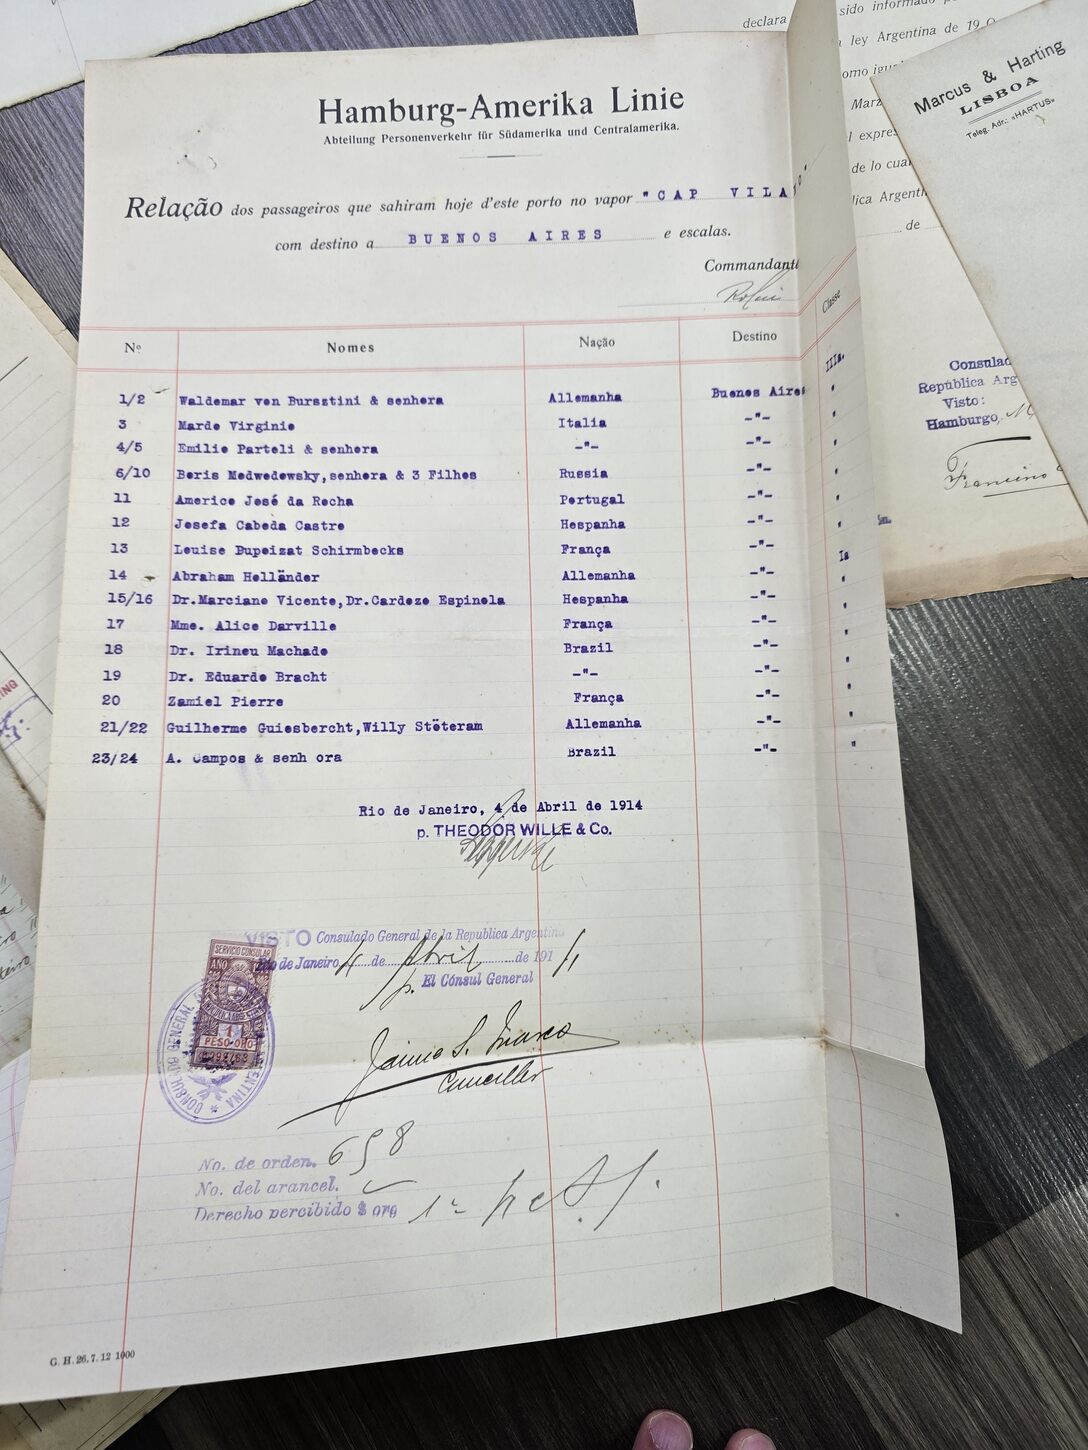 Hamburg-Amerika Linie
Abteilung Personenverkehr für Südamerika und Centralamerika.
Relação dos passageiros que sahiram hoje d'este porto no vapor "CAP VILANO"
com destino a BUENOS AIRES e escalas.
Commandante
Nº Nomes Nação Destino Classe
1/2 Waldemar von Bursztini & senhora Allemanha Buenos Aires IIIa.
3 Marde Virginie Italia -"- "
4/5 Emilie Parteli & senhora -"- -"- "
6/10 Boris Medwedewsky, senhora & 3 Filhos Russia -"- "
11 Americo José da Rocha Portugal -"- "
12 Josefa Cabeda Castro Hespanha -"- "
13 Louise Dupoizat Schirmbecks França -"- Ia
14 Abraham Holländer Allemanha -"- "
15/16 Dr.Marciano Vicente, Dr.Cardozo Espinola Hespanha -"- "
17 Mme. Alice Darville França -"- "
18 Dr. Irineu Machado Brazil -"- "
19 Dr. Eduardo Bracht -"- -"- "
20 Zamiel Pierre França -"- "
21/22 Guilherme Guiesbercht, Willy Stöteram Allemanha -"- "
23/24 A. Campos & senh ora Brazil -"- "
Rio de Janeiro, 4 de Abril de 1914
p. THEODOR WILLE & Co.
VISTO Consulado General de la Republica Argentina
Rio de Janeiro 4 de Abril de 1914
p. El Cónsul General
Jaime S.
Canciller
SERVICIO CONSULAR
AÑO
1
PESO ORO
CONSULADO GENERAL
ARGENTINA
No. de orden. 698
No. del arancel.
Derecho percibido $ oro 1
G. H. 26. 7. 12 1000
declara
sido informado
ley Argentina de 19
como
expres
de lo cual
de
Marcus & Harting
LISBOA
Teleg. Adr.: «HARTUS»
Consulad
República Arg
Visto:
Hamburgo,
Francisco